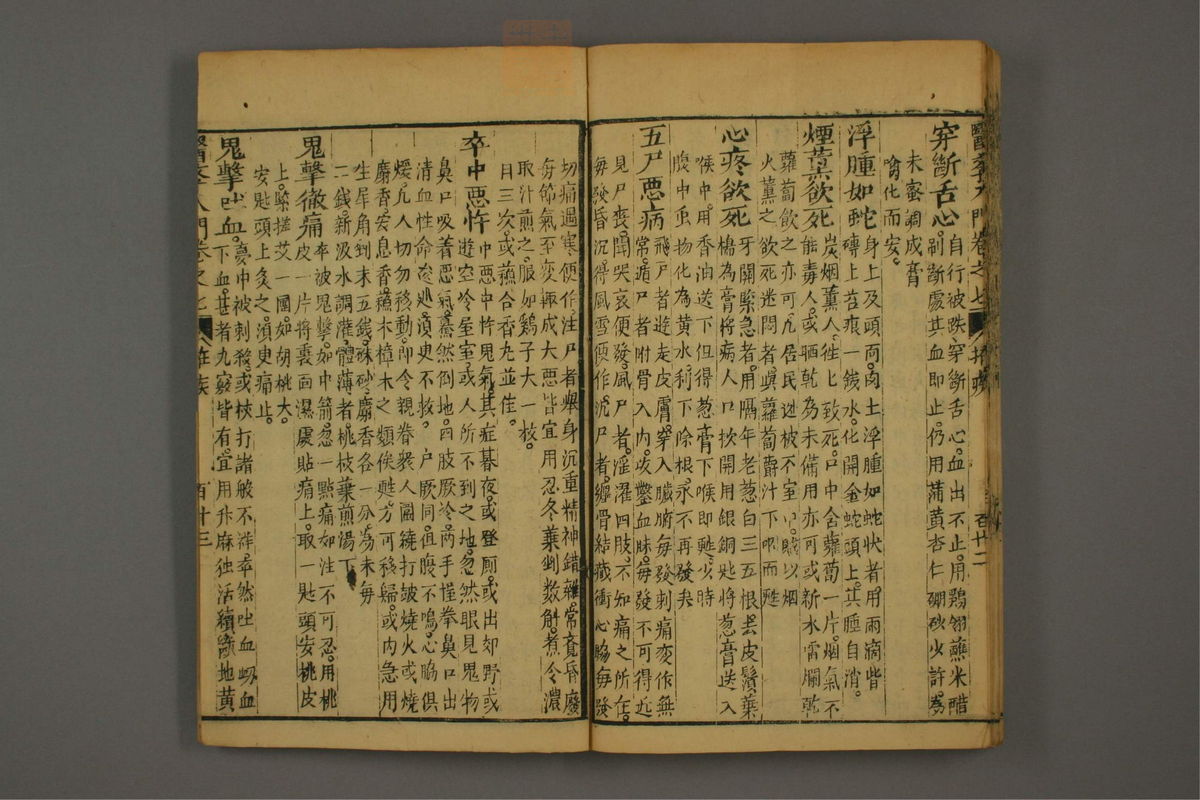 醫學入門卷之七 雜疾 百廿二
穿斷舌心 自行被跌穿斷舌心血出不止用鵝翎蘸米醋
刷斷處其血即止仍用蒲黃杏仁硼砂少許為
末蜜調成膏
噙化而安
浮腫如蛇 身上及頭面肉上浮腫如蛇狀者用雨滴堦
磚上苔痕一錢水化開塗蛇頭上其腫自消
煙薰欲死 炭烟薰人往往致死口中含蘿蔔一片烟氣不
能毒人或晒乾為末備用亦可或新水擂爛乾
蘿蔔飲之亦可凡居民逃被不室以賊以烟
火薰之欲死迷悶者與蘿蔔嚼汁下咽而甦
心疼欲死 牙關緊急者用隔年老葱白三五根去皮鬚葉
搗為膏將病人口扶開用銀銅匙將葱膏送入
喉中用香油送下但得葱膏下喉即甦少時
腹中虫物化為黃水利下除根永不再發矣
五尸惡病 飛尸者遊走皮膚穿入臟腑每發刺痛变作無
常遁尸者附骨入肉攻鑿血脉每發不可得近
見尸喪聞哭哀便發風尸者淫濯四肢不知痛之所在
每發昏沉得風雪便作沉尸者纏骨結臟衝心脇每發
切痛遇寒便作注尸者舉身沉重精神錯雜常覺昏廢
每節氣至变輒成大惡皆宜用忍冬葉剉数斛煮令濃
取汁煎之服如鷄子大一枚
日三次或蘇合香丸並佳
卒中惡忤 中惡中忤鬼氣其症暮夜或登厠或出郊野或
遊空冷屋室或人所不到之地忽然眼見鬼物
鼻口吸着惡氣驀然倒地四肢厥冷两手握拳鼻口出
清血性命逡巡須臾不救 尸厥同但腹不鳴心脇俱
煖凡人切勿移動即令親眷衆人圍繞打皷燒火或燒
麝香安息香蘇木樟木之類俟甦方可移歸或内急用
生犀角剉末五錢硃砂麝香各一分為末每
二錢新汲水調灌體薄者桃枝葉煎湯下
鬼擊徹痛 卒被鬼擊如中箭忽一點痛如注不可忍用桃
皮一片將裏面濕處貼痛上取一匙頭安桃皮
上緊搓艾一團如胡桃大
安匙頭上灸之須臾痛止
鬼擊吐血 夢中被刺殺或杖打諸般不祥卒然吐血衂血
下血甚者九竅皆有宜用升麻独活續斷地黃
醫學入門卷之七 雜疾 百廿三